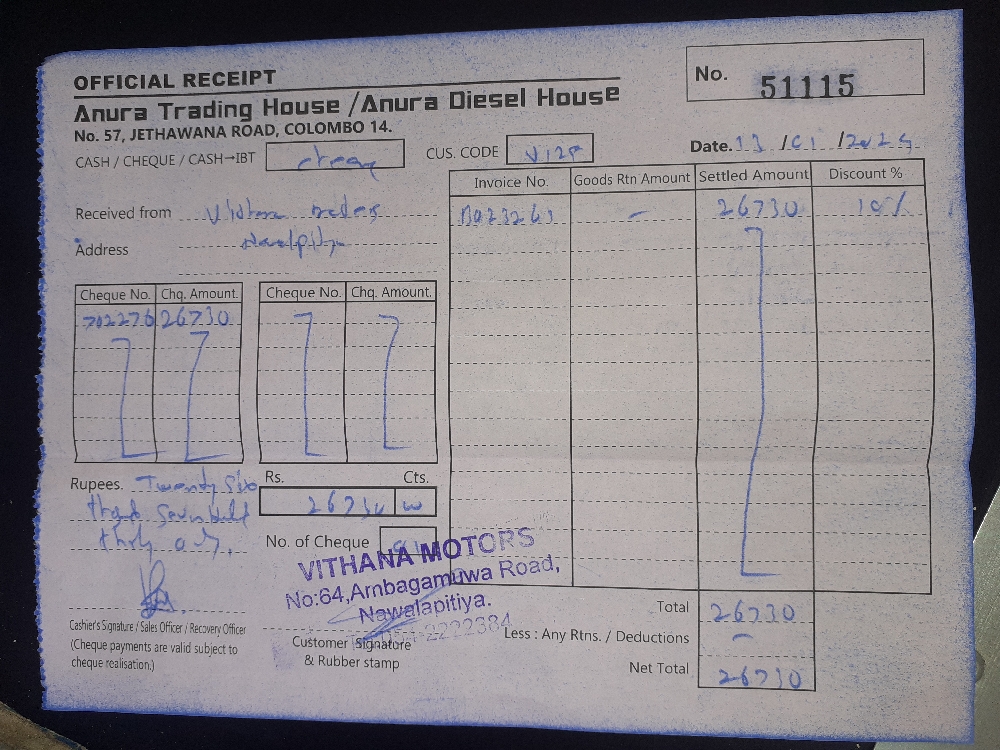 OFFICIAL RECEIPT
Anura Trading House / Anura Diesel House
No. 57, JETHAWANA ROAD, COLOMBO 14.
No. 51115
CASH / CHEQUE / CASH→IBT
CUS. CODE
Date. 13 / 01 /
Received from
Address
Invoice No. Goods Rtn Amount Settled Amount Discount %
– 26730 10%
Cheque No. Chq. Amount. Cheque No. Chq. Amount.
702276 26730
Rupees. Twenty Six
Rs. Cts.
26730
No. of Cheque
VITHANA MOTORS
No:64,Ambagamuwa Road,
Nawalapitiya.
2222384
Cashier's Signature / Sales Officer / Recovery Officer
(Cheque payments are valid subject to
cheque realisation.)
Customer Signature
& Rubber stamp
Total 26730
Less : Any Rtns. / Deductions –
Net Total 26730